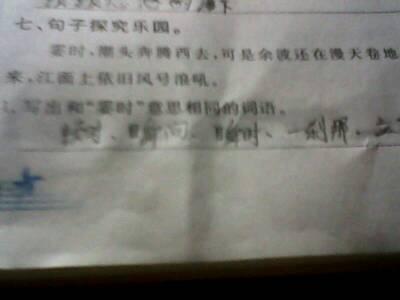 七、句子探究乐园。
霎时,潮头奔腾西去,可是余波还在漫天卷地
来,江面上依旧风号浪吼。
写出和“霎时”意思相同的词语。
瞬间、瞬时、一刹那、立